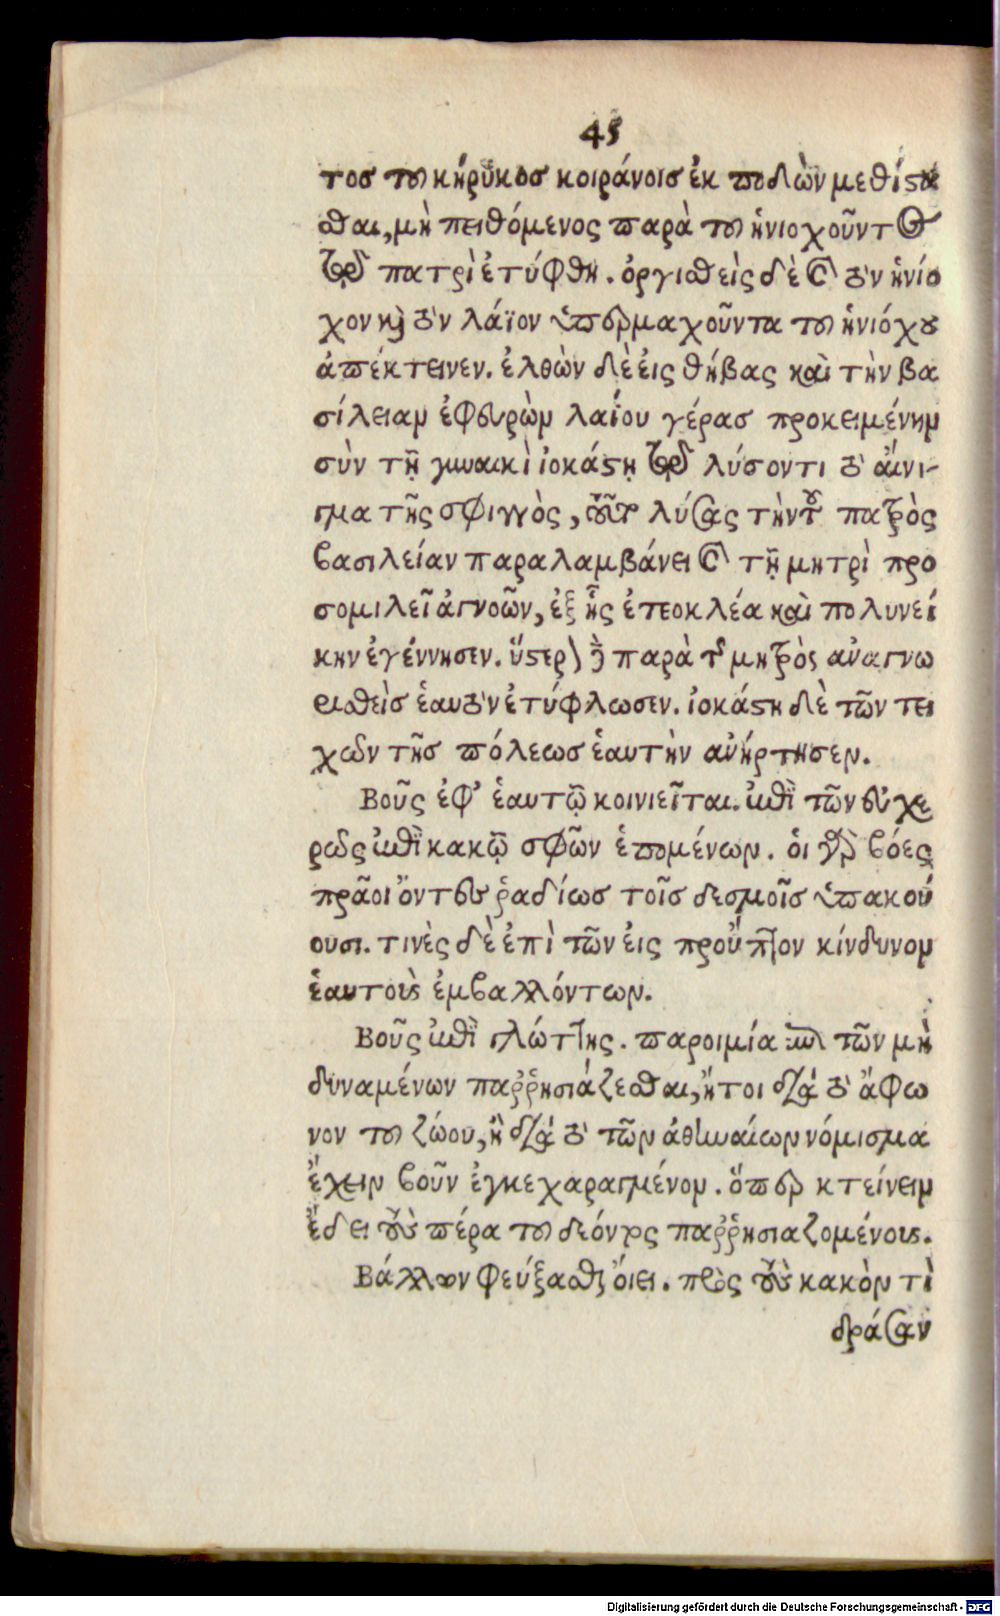 45
τοσ τοῦ κήρυκοσ κοιράνοισ ἐκ ποδῶν μεθίστα
σθαι, μὴ πειθόμενος παρὰ τοῦ ἡνιοχοῦντος
τῷ πατρὶ ἐτύφθη. ὀργισθεὶς δὲ καὶ τὸν ἡνίο
χον καὶ τὸν λάϊον ὑπερμαχοῦντα τοῦ ἡνιόχου
ἀπέκτεινεν. ἐλθὼν δὲ εἰς θήβας καὶ τὴν βα
σίλειαν ἐφευρὼν λαΐου γέρασ προκειμένην
σὺν τῇ γυναικὶ ἰοκάστῃ τῷ λύσοντι τὸ αἴνι-
γμα τῆς σφιγγὸς, τοῦτο λύσας τὴν τοῦ πατρὸς
βασιλείαν παραλαμβάνει καὶ τῇ μητρὶ προ
σομιλεῖ ἀγνοῶν, ἐξ ἧς ἐτεοκλέα καὶ πολυνεί
κην ἐγέννησεν. ὕστερον δὲ παρὰ τῆς μητρὸς ἀναγνω
ρισθεὶσ ἑαυτὸν ἐτύφλωσεν. ἰοκάστη δὲ τῶν τει
χῶν τῆσ πόλεωσ ἑαυτὴν ἀνήρτησεν.
Βοῦς ἐφ' ἑαυτῷ κονιεῖται. ἐπὶ τῶν εὐχε
ρῶς ἐπὶ κακῷ σφῶν ἑπομένων. οἱ γὰρ βόες
πρᾶοι ὄντες ῥαδίωσ τοῖσ δεσμοῖσ ὑπακού
ουσι. τινὲς δὲ ἐπὶ τῶν εἰς προὖπτον κίνδυνον
ἑαυτοὺς ἐμβαλλόντων.
Βοῦς ἐπὶ γλώττης. παροιμία ἐπὶ τῶν μὴ
δυναμένων παῤῥησιάζεσθαι, ἤτοι διὰ τὸ ἄφω
νον τοῦ ζώου, ἢ διὰ τὸ τῶν ἀθηναίων νόμισμα
ἔχειν βοῦν ἐγκεχαραγμένον. ὅπερ κτείνειν
ἔδει τοὺς πέρα τοῦ δεόντος παῤῥησιαζομένους.
Βάλλον φεύξασθαι οἴει. πρὸς τοὺς κακόν τὶ
δράσαν
Digitalisierung gefördert durch die Deutsche Forschungsgemeinschaft - DFG